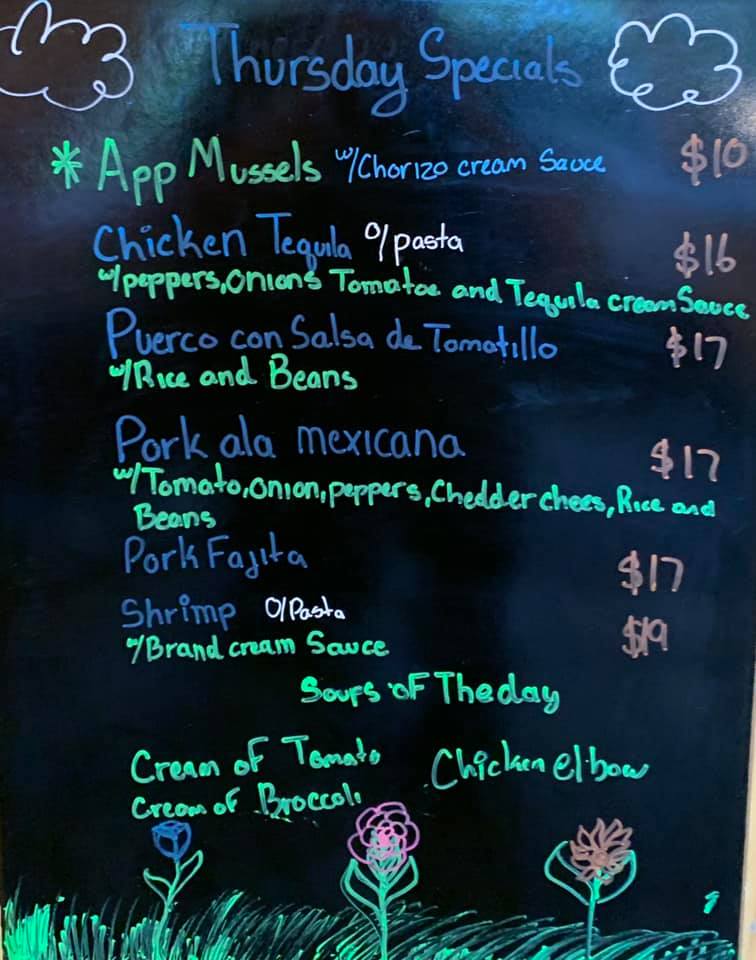 Thursday Specials
* App Mussels w/Chorizo cream Sauce $10
Chicken Tequila o/pasta $16
w/peppers, onions Tomatoe and Tequila cream Sauce
Puerco con Salsa de Tomatillo $17
w/Rice and Beans
Pork ala mexicana $17
w/Tomato, onion, peppers, Chedder chees, Rice and
Beans
Pork Fajita $17
Shrimp O/Pasta $19
w/Brand cream Sauce
Soups of The day
Cream of Tomato Chicken elbow
Cream of Broccoli